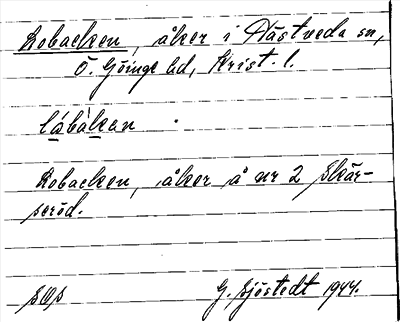 Lobacken, åker i Hästveda sn,
Ö. Göinge hd, Krist. l.
låbàkan .
Lobacken, åker å nr 2 Skär-
seröd.
SOS
G. Sjöstedt 1944.